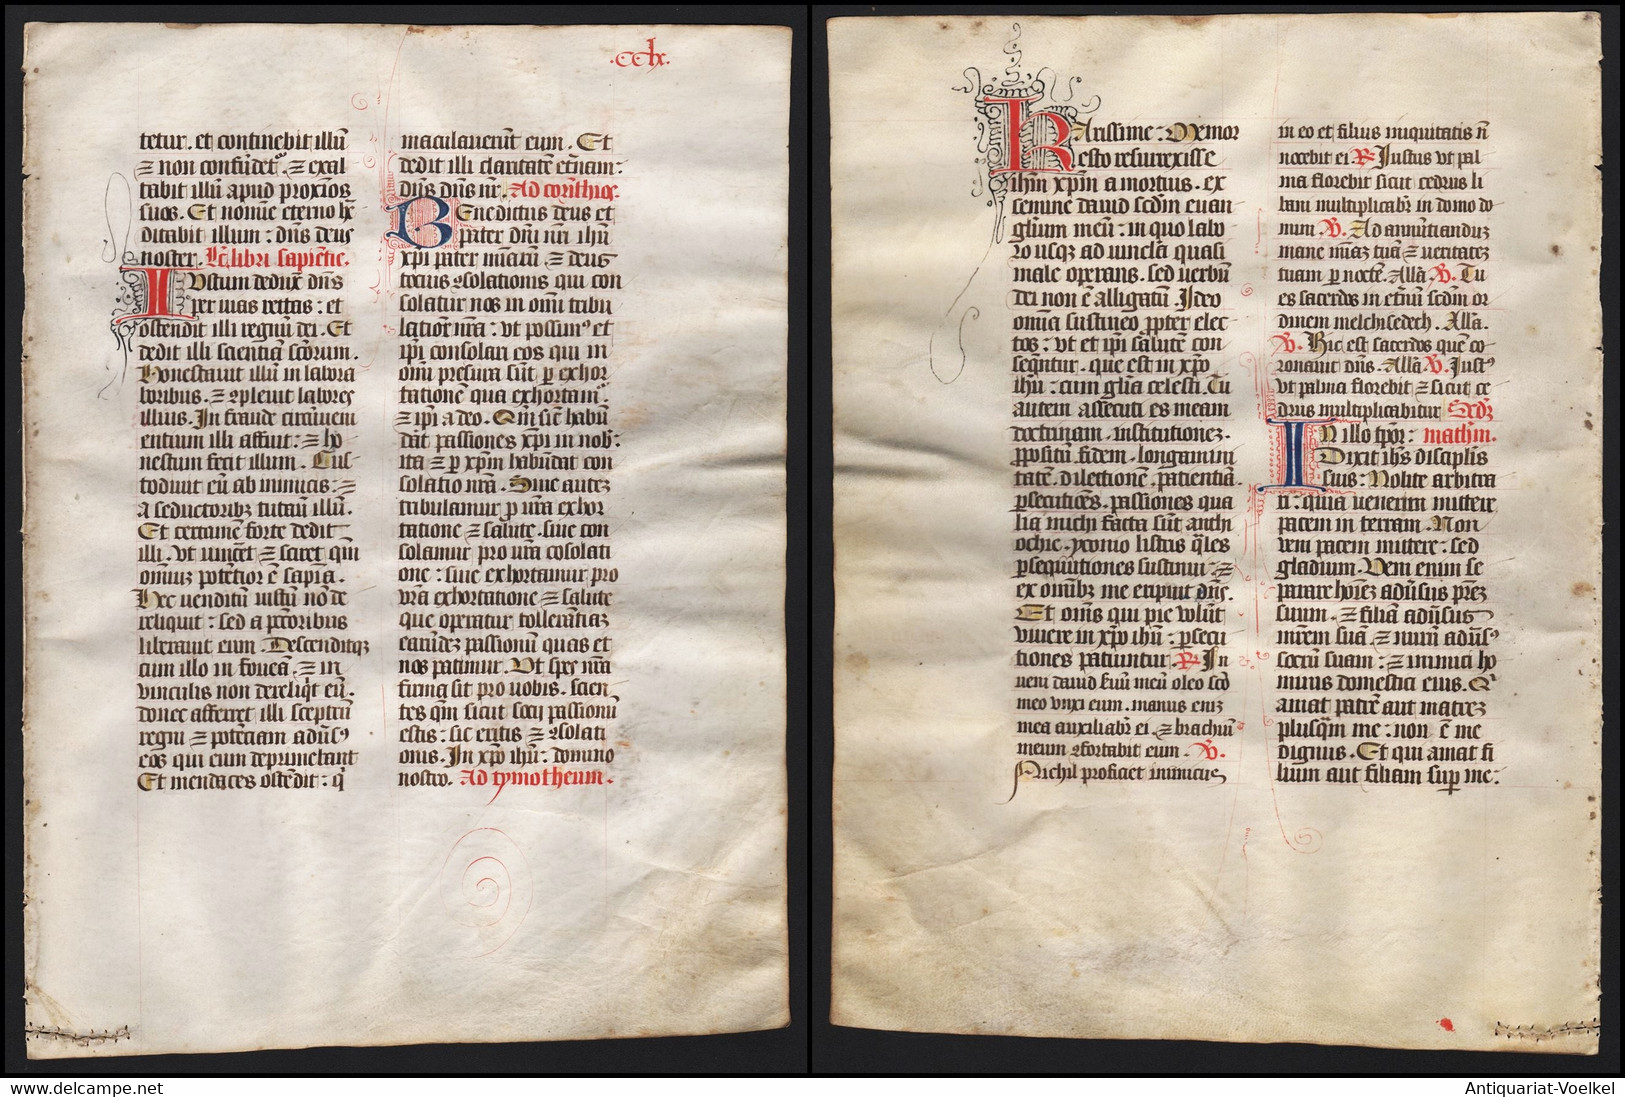 .cclx.
tetur. et continebit illũ
⁊ non confũdet᷑. ⁊ exal
tabit illũ apud proximos
suos. Et nomine eterno he
ditabit illum : dñs deus
noster. Lc̃ libri sapientie.
IVstum deduxit dñs
per vias rectas : et
ostendit illi regnũ dei. Et
dedit illi scientiã sc̃orum.
Honestavit illũ in labora
boribus. ⁊ ꝯplevit labores
illius. In fraude circũveni
entium illi affuit : ⁊ ho
nestum fecit illum. Cus
todivit eũ ab inimicis : ⁊
a seductoribꝫ tutavit illũ.
Et certamen forte dedit
illi. Vt vinc̃et ⁊ sciret qm̃
omniũ potẽtior ẽ sapĩa.
Hec venditũ iustũ nõ de
reliquit : sed a pctõribus
liberavit eum. Descenditqꝫ
cum illo in foveã. ⁊ in
vinculis non dereliq̃t eũ.
donec afferret illi sceptrũ
regni ⁊ potẽciam adũsꝰ
eos qui eum deprimebant
Et mendaces ostẽdit : q̃
maculaverũt eum. Et
dedit illi claritatẽ et̃nam :
dñs dñs nr̃. Ad corinthios.
BEnedictus deus et
pater dñi nr̃i ihũ
xp̃i pater mĩaꝝ ⁊ deus
tocius ꝯsolationis qui con
solatur nos in omĩ tribu
latiõe nr̃a : vt possimꝰ et
ip̃i consolari eos qui in
omĩ pressura sũt p exhor
tatione qua exhortam᷑.
⁊ ip̃i a deo. Qm̃ sicut habũ
dãt passiones xp̃i in nob̃ :
ita ⁊ p xp̃m habũdat con
solatio nr̃a. Sive autẽ
tribulamur p vr̃a exhor
tatione ⁊ salute. sive con
solamur pro vr̃a cõsolati
one : sive exhortamur pro
vr̃a exhortatione ⁊ salute
que operatur tollerãtiã
earũdẽ passionũ quas et
nos patimur. Vt spes nr̃a
firma sit pro vobis. scien
tes qm̃ sicut socij passionũ
estis : sic eritis ⁊ ꝯsolati
onis. In xp̃o ihũ : domino
nostro. Ad tymotheum.
KArissime : Memor
esto resurrexisse
ihm̃ xp̃m a mortuis. ex
semine david sc̃dm evan
gl̃ium meũ : in quo labo
ro usqꝫ ad vincla quasi
male operans. sed verbũ
dei non ẽ alligatũ. Ideo
omnia sustineo ꝓpter elec
tos : vt et ip̃i salutẽ con
seq̃ntur. que est in xp̃o
ihũ : cum gl̃ia celesti. Tu
autem assecuti es meam
doctrinam. institutionẽ.
ꝓpositũ. fidem. longanimi
tatẽ. dilectionẽ. patientiã.
ꝑsecutiões. passiones qua
lia michi facta sũt anthi
ochie. yconio listris q̃les
ꝑsequutiones sustinui : ⁊
ex omĩbꝫ me eripuit dñs.
Et omẽs qui pie volũt
vivere in xp̃o ihũ : ꝑsecu
tiones patiuntur. R. In
veni david ẽvũ meũ oleo sc̃o
meo vnxi eum. manus enĩ
mea auxiliabr̃ ei. ⁊ brachiũ
meum ꝯfortabit eum. V.
Nichil proficiet inimicus
in eo et filius iniquitatis ñ
nocebit ei R. Justus vt pal
ma florebit sicut cedrus li
bani multiplicabr̃ in domo do
mini V. Ad annũtiandũ
mane miãꝫ tuã ⁊ veritatẽ
tuam p noctẽ. All̃a V. Tu
es sacerdos in et̃nũ sc̃dm or
dinem melchisedech. All̃a.
V. Hic est sacerdos quẽ co
ronavit dñs. All̃a V. Justꝰ
vt palma florebit ⁊ sicut ce
drus multiplicabitur Scd̃z
IN illo tp̃or : mathm̃.
Dixit ihs discipl̃is
suis : Nolite arbitra
ri : quia venerim mittere
pacem in terram. Non
veni pacem mittere : sed
gladium. Veni enim se
parare hoĩeꝫ adũsus prẽꝫ
suum. ⁊ filiã adũsus
mr̃em suã : ⁊ nurũ adũsꝰ
socrũ suam : ⁊ inimici ho
minis domestici eius. Qi
amat patrẽ aut matrẽ
plusqm̃ me : non ẽ me
dignus. Et qui amat fi
lium aut filiam sup̃ me :
© delcampe.net
Antiquariat-Voelkel